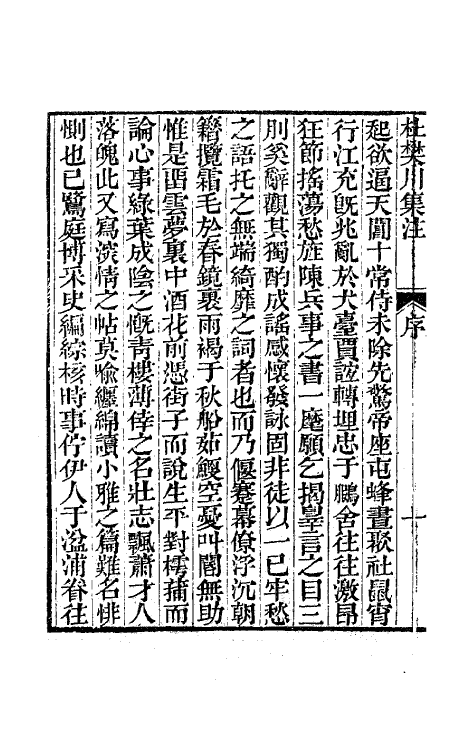 杜樊川集注　序　十
起欲逼天閽十常侍未除先驚帝座屯蜂晝聚社鼠宵
行江充旣兆亂於犬臺賈誼轉埋忠于鵬舍往往激昂
狂節搖蕩愁旌陳兵事之書一麾願乞揭辠言之目三
刖奚辭觀其獨酌成謠感懷發詠固非徒以一己牢愁
之語托之無端綺靡之詞者也而乃偃蹇幕僚浮沉朝
籍攬霜毛於春鏡裏雨褐于秋船茹鯁空憂叫閽無助
惟是罶雲夢裏中酒花前憑街子而說生平對樗蒱而
論心事綠葉成陰之慨靑樓薄倖之名壯志飄蕭才人
落魄此又寫淡情之帖莫喩纏綿讀小雅之篇難名悱
惻也已鷺庭博采史編綜核時事佇伊人于湓浦眷往